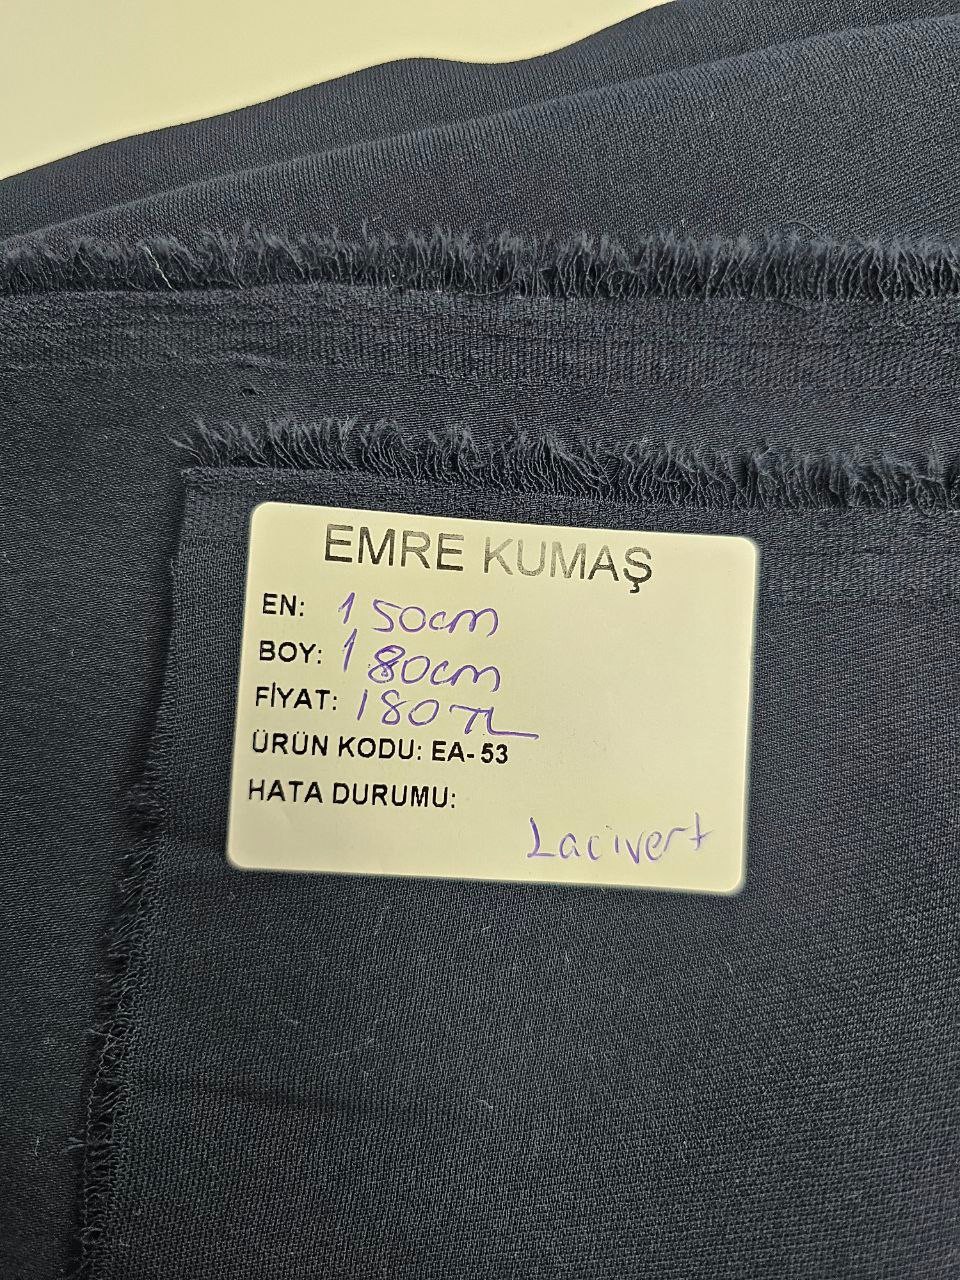 EMRE KUMAŞ
EN: 150cm
BOY: 180cm
FİYAT: 180 TL
ÜRÜN KODU: EA- 53
HATA DURUMU:
Lacivert